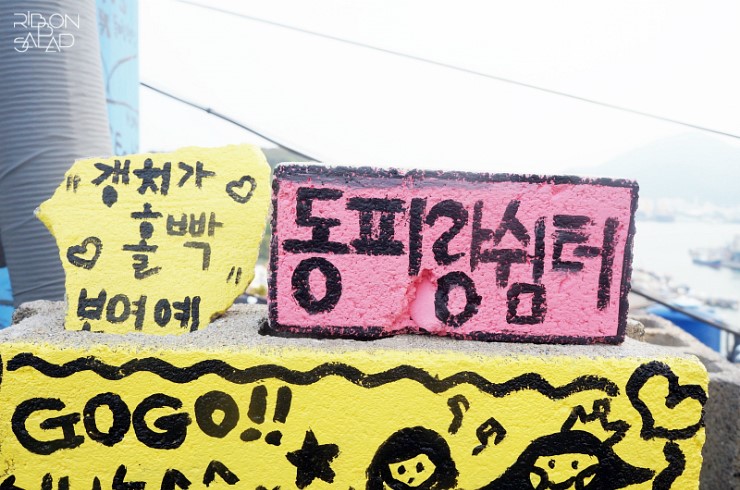 RIBBON
SALAD
"갱치가
홀빡
보여예"
동피랑쉼터
GOGO!!